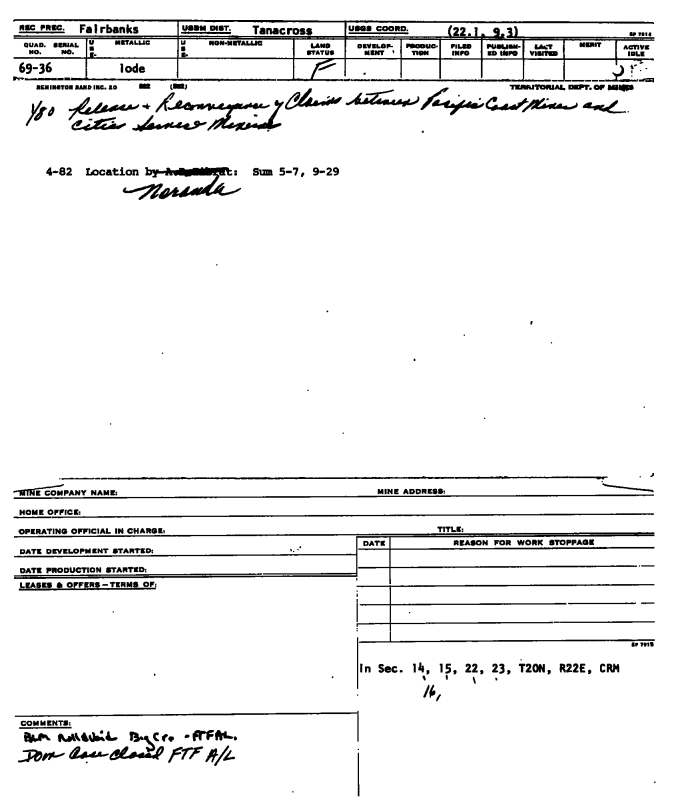 REC PREC. Fairbanks USBM DIST. Tanacross USGS COORD. (22.1, 9.3) SP 7014
QUAD. NO. SERIAL NO. USE- METALLIC USE- NON-METALLIC LAND STATUS DEVELOP-MENT PRODUC-TION FILED INFO PUBLISH-ED INFO LAST VISITED MERIT ACTIVE IDLE
69-36 lode F
REMINGTON RAND INC. TERRITORIAL DEPT. OF MINES
1/80 Release + Reconveyance of Claims between Pacific Coast Mines and
Cities Service Minerals
4-82 Location by : Sum 5-7, 9-29
Noranda
MINE COMPANY NAME: MINE ADDRESS:
HOME OFFICE:
OPERATING OFFICIAL IN CHARGE: TITLE:
DATE DEVELOPMENT STARTED: DATE REASON FOR WORK STOPPAGE
DATE PRODUCTION STARTED:
LEASES & OFFERS - TERMS OF:
SP 7015
In Sec. 14, 15, 22, 23, T20N, R22E, CRM
16,
COMMENTS:
BLM FTFAL.
Dom Case Closed FTF A/L